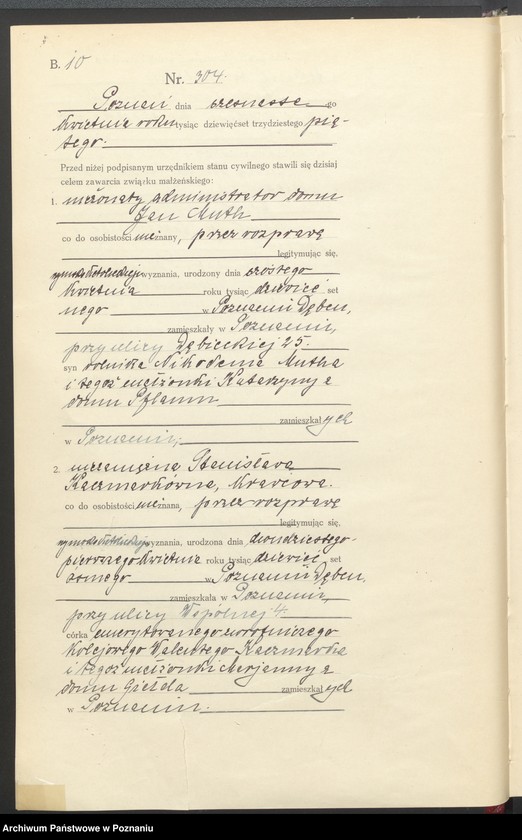 B. 10
Nr. 304.
Poznań dnia szesnastego
kwietnia roku tysiąc dziewięćset trzydziestego pią-
tego.
Przed niżej podpisanym urzędnikiem stanu cywilnego stawili się dzisiaj
celem zawarcia związku małżeńskiego:
1. nieżonaty administrator domu
Jan Muth
co do osobistości nieznany, przez rozprawę
legitymując się,
rzymskokatolickiego wyznania, urodzony dnia szóstego
kwietnia roku tysiąc dziewięć set
nego w Poznaniu Dęben,
zamieszkały w Poznaniu,
przy ulicy Dębieckiej 25.
syn rolnika Nikodema Mutha
i tegoż małżonki Katarzyny z
domu Pflaum
zamieszkałych
w Poznaniu,
2. niezamężna Stanisława
Kaczmarkówna, krawcowa.
co do osobistości nieznana, przez rozprawę
legitymując się,
rzymskokatolickiego wyznania, urodzona dnia dwudziestego-
pierwszego kwietnia roku tysiąc dziewięć set
ósmego w Poznaniu Dęben,
zamieszkała w Poznaniu,
przy ulicy Wspólnej 4.
córka emerytowanego zwrotniczego
kolejowego Walentego Kaczmarka
i tegoż małżonki Marjanny z
domu Gielda zamieszkałych
w Poznaniu.
Archiwum Państwowe w Poznaniu